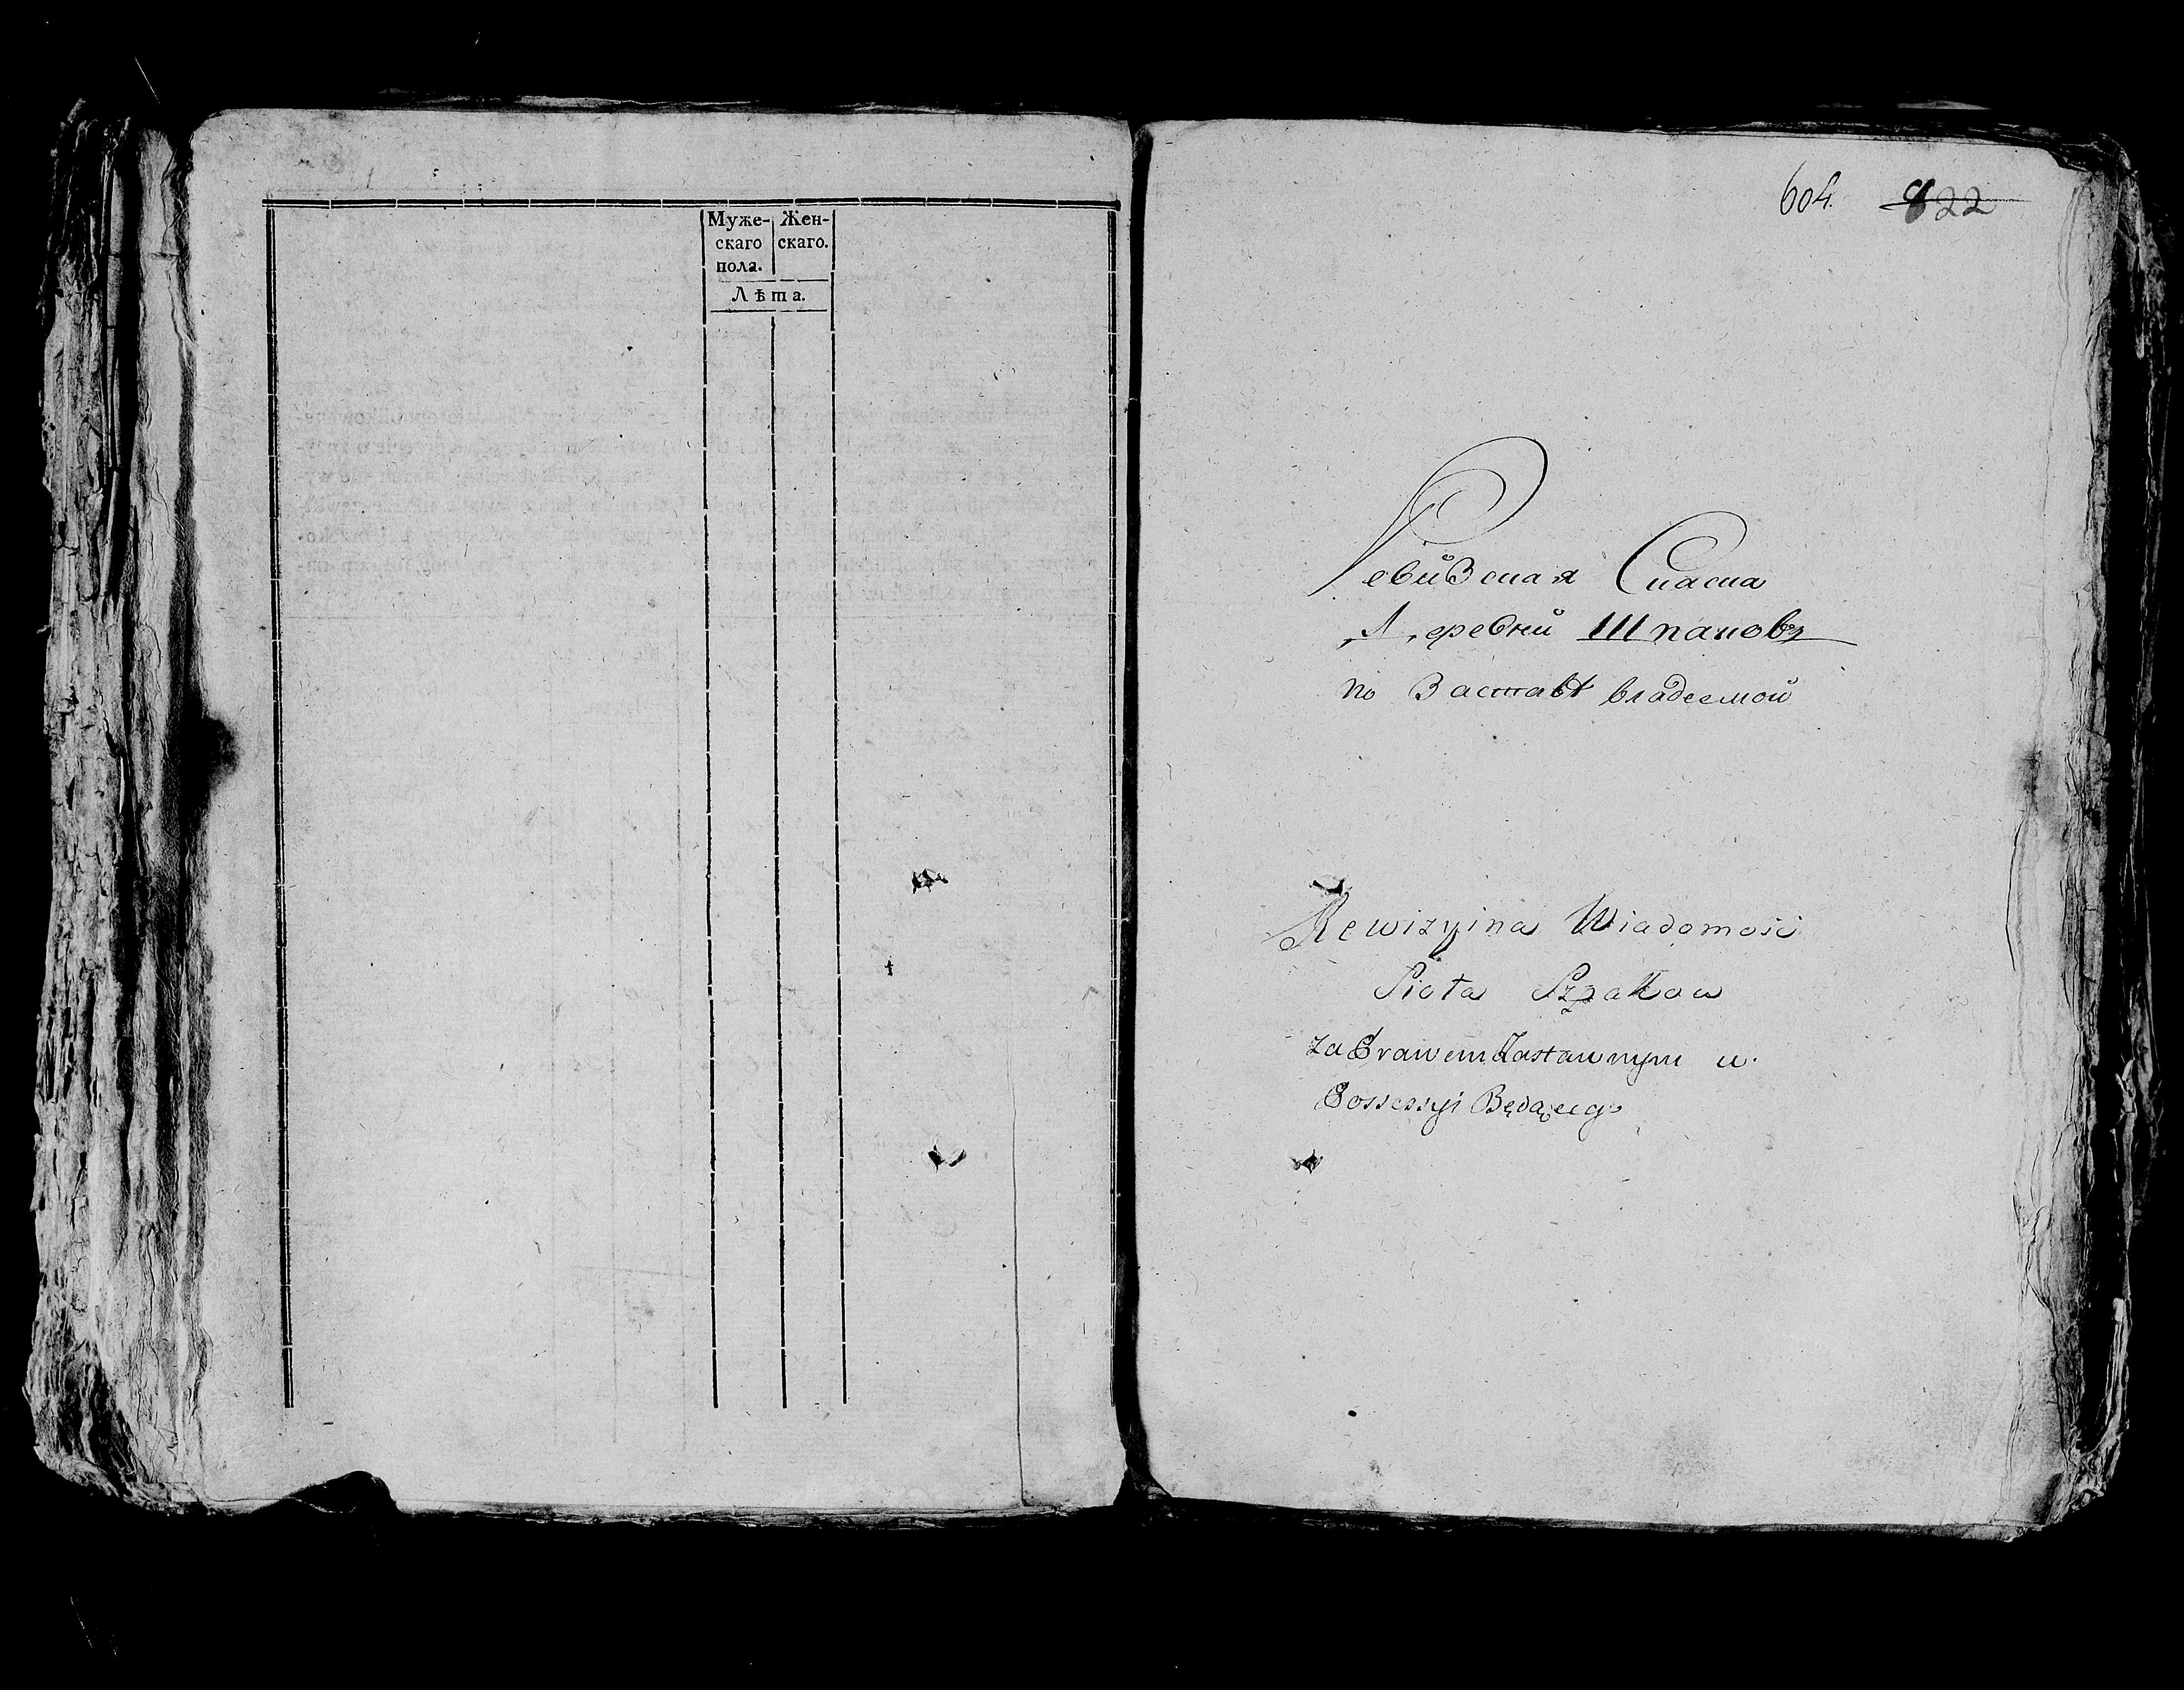 Муже- Жен-
скаго скаго.
пола.
Лѣта.
604. 822
Ревизская Скаска
Деревни Шпаковъ
по Заставѣ владеемой
Rewizyina Wiadomość
Sioła Szpakow
za Prawem Zastawnym w
Possessyi Będącego